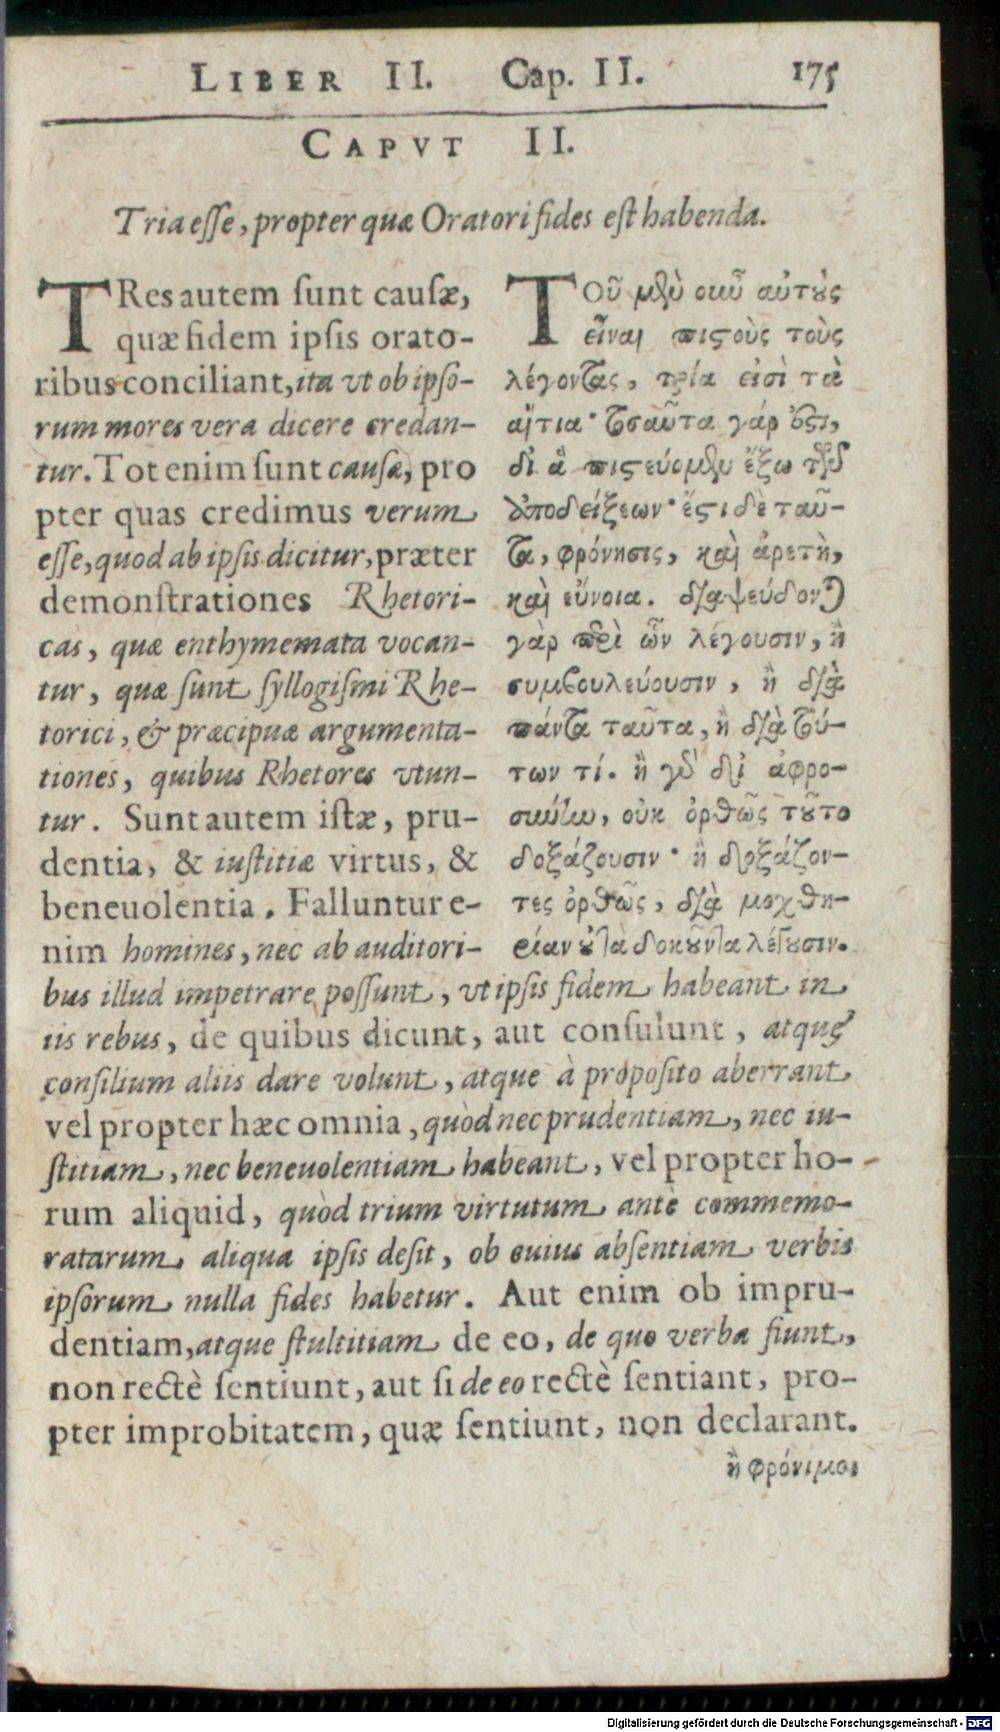 LIBER II. Cap. II. 175
CAPVT II.
Tria eſſe, propter quæ Oratori fides eſt habenda.
TRes autem ſunt cauſæ,
quæ fidem ipſis orato-
ribus conciliant, ita vt ob ipſo-
rum mores vera dicere credan-
tur. Tot enim ſunt cauſæ, pro
pter quas credimus verum
eſſe, quod ab ipſis dicitur, præter
demonſtrationes Rhetori-
cas, quæ enthymemata vocan-
tur, quæ ſunt ſyllogiſmi Rhe-
torici, & præcipuæ argumenta-
tiones, quibus Rhetores vtun-
tur. Sunt autem iſtæ, pru-
dentia, & iuſtitiæ virtus, &
beneuolentia. Falluntur e-
nim homines, nec ab auditori-
bus illud impetrare poſſunt, vt ipſis fidem habeant in
iis rebus, de quibus dicunt, aut conſulunt, atque
conſilium aliis dare volunt, atque à propoſito aberrant
vel propter hæc omnia, quòd nec prudentiam, nec iu-
ſtitiam, nec beneuolentiam habeant, vel propter ho-
rum aliquid, quòd trium virtutum antè commemo-
ratarum aliqua ipſis deſit, ob cuius abſentiam verbis
ipſorum nulla fides habetur. Aut enim ob impru-
dentiam, atque ſtultitiam de eo, de quo verba fiunt,
non rectè ſentiunt, aut ſi de eo rectè ſentiant, pro-
pter improbitatem, quæ ſentiunt, non declarant.
Τοῦ μὲν οὖν αὐτοὺς
εἶναι πιστοὺς τοὺς
λέγοντας, τρία εἰσὶ τὰ
αἴτια· τοσαῦτα γάρ ἐστι,
δι᾽ ἃ πιστεύομεν ἔξω τῶν
ἀποδείξεων· ἔστι δὲ ταῦ-
τα, φρόνησις, καὶ ἀρετὴ,
καὶ εὔνοια. διαψεύδονται
γὰρ περὶ ὧν λέγουσιν, ἢ
συμβουλεύουσιν, ἢ διὰ
πάντα ταῦτα, ἢ διὰ τού-
των τί. ἢ γὰρ δι᾽ ἀφρο-
σύνην, οὐκ ὀρθῶς τοῦτο
δοξάζουσιν· ἢ δοξάζον-
τες ὀρθῶς, διὰ μοχθη-
ρίαν οὐ τὰ δοκοῦντα λέγουσιν.
ἢ φρόνιμοι
Digitalisierung gefördert durch die Deutsche Forschungsgemeinschaft - DFG